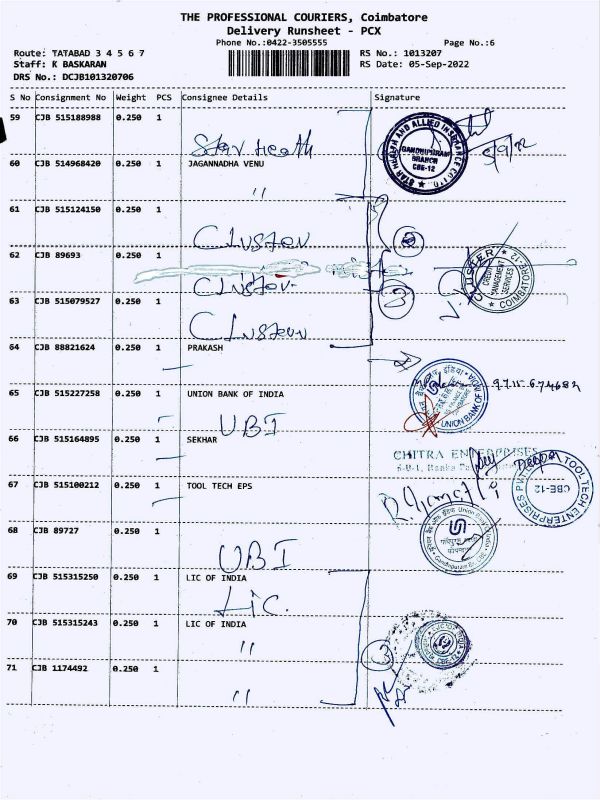 THE PROFESSIONAL COURIERS, Coimbatore
Delivery Runsheet - PCX
Phone No.:0422-3505555 Page No.:6
Route: TATABAD 3 4 5 6 7 RS No.: 1013207
Staff: K BASKARAN RS Date: 05-Sep-2022
DRS No.: DCJB101320706
S No Consignment No Weight PCS Consignee Details Signature
59 CJB 515188988 0.250 1
Star Health
STAR HEALTH AND ALLIED INSURANCE CO LTD GANDHIPURAM BRANCH CBE-12
5/9/22
60 CJB 514968420 0.250 1 JAGANNADHA VENU
"
61 CJB 515124150 0.250 1
Cluster
62 CJB 89693 0.250 1
Cluster
CLUSTER CREDIT MANAGEMENT SERVICES COIMBATORE-12
63 CJB 515079527 0.250 1
3
Cluster
64 CJB 88821624 0.250 1 PRAKASH
65 CJB 515227258 0.250 1 UNION BANK OF INDIA
UNION BANK OF INDIA
UBI
66 CJB 515164895 0.250 1 SEKHAR
CHITRA ENTERPRISES
67 CJB 515100212 0.250 1 TOOL TECH EPS
TOOL TECH ENTERPRISES PVT CBE-12
68 CJB 89727 0.250 1
UBI
69 CJB 515315250 0.250 1 LIC OF INDIA
LIC.
70 CJB 515315243 0.250 1 LIC OF INDIA
"
3
71 CJB 1174492 0.250 1
"